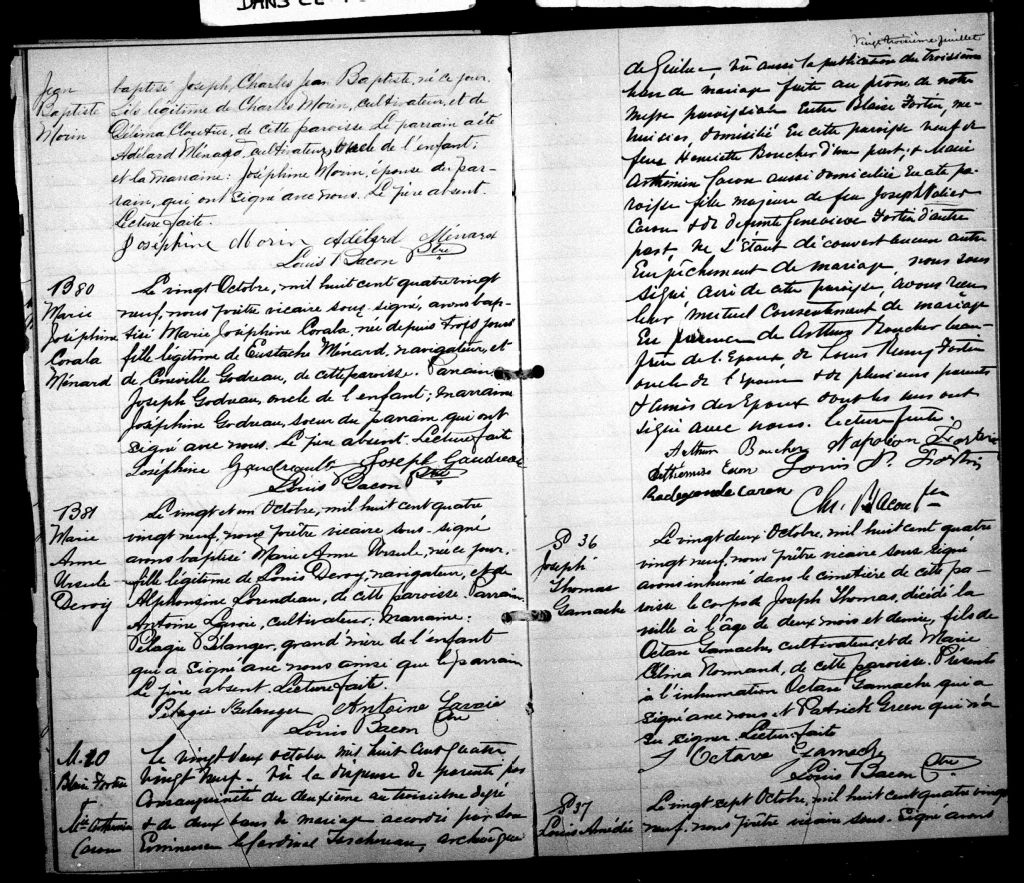 DANS CE
Jean
Baptiste
Morin
baptisé Joseph, Charles Jean Baptiste, né ce jour.
fils légitime de Charles Morin, cultivateur, et de
Délima Cloutier, de cette paroisse. Le parrain a été
Adélard Ménard, cultivateur, oncle de l'enfant;
et la marraine: Joséphine Morin, épouse du par-
rain, qui ont signé avec nous. Le père absent
Lecture faite.
Joséphine Morin Adélard Ménard
Louis Bacon Ptre
B80
Marie
Joséphine
Corala
Ménard
Le vingt Octobre, mil huit cent quatre vingt
neuf, nous prêtre vicaire sous-signé, avons bap-
tisé Marie Joséphine Corala, née depuis trois jours
fille légitime de Eustache Ménard, navigateur, et
de Godreau, de cette paroisse. Parrain
Joseph Godreau, oncle de l'enfant; marraine
Joséphine Godreau, soeur du parrain, qui ont
signé avec nous. Le père absent. Lecture faite
Joséphine Gaudreault Joseph Gaudreau
Louis Bacon Ptre
B81
Marie
Anne
Ursule
Deroy
Le vingt et un Octobre, mil huit cent quatre
vingt neuf, nous prêtre vicaire sous-signé
avons baptisé Marie Anne Ursule, née ce jour.
fille légitime de Louis Deroy, navigateur, et de
Alphonsine Lorendeau, de cette paroisse. Parrain
Antoine Lavoie, cultivateur; Marraine:
Pélagie Bélanger, grand'mère de l'enfant
qui a signé avec nous ainsi que le parrain
Le père absent. Lecture faite.
Pélagie Belanger Antoine Lavoie
Louis Bacon Ptre
M.20
Blaise Fortin
+
Caron
Le vingt deux octobre mil huit cent quatre
vingt neuf. Vu la dispense de parenté par
Consanguinité du deuxième au troisième degré
+ de deux bans de mariage accordée par Son
Eminence le Cardinal Taschereau, archevêque
Vingt troisième feuillet
de Québec, vu aussi la publication du troisième
ban de mariage faite au prône de notre
Messe paroissiale Entre Blaise Fortin, me-
nuisier, domicilié En cette paroisse veuf de
feue Henriette Boucher d'une part; + Marie
Caron aussi domiciliée En cette pa-
roisse fille majeure de feu Joseph
Caron + de défunte Geneviève Fortin d'autre
part, ne s'étant découvert aucun autre
Empêchement de mariage, nous sous
signé, curé de cette paroisse, avons reçu
leur mutuel Consentement de mariage
En présence de Arthur Boucher beau-
frère de l'Epoux de Louis Fortin
oncle de l'Epouse + de plusieurs parents
+ amis des Epoux dont les uns ont
signé avec nous. lecture faite.
Arthur Boucher Napoléon Fortin
Louis P. Fortin
Radegonde Caron
Chs. Bacon Ptre
S 36
Joseph
Thomas
Gamache
Le vingt deux Octobre, mil huit cent quatre
vingt neuf, nous prêtre vicaire sous signé
avons inhumé dans le cimetière de cette pa-
roisse le corps de Joseph Thomas, décédé la
veille à l'âge de deux mois et demie, fils de
Octave Gamache, cultivateur, et de Marie
Célina Normand, de cette paroisse. Présents
à l'inhumation Octave Gamache qui a
signé avec nous et Patrick Green qui n'a
su signer. Lecture faite
J Octave Gamache
Louis Bacon Ptre
S 37
Louis Amédée
Le vingt sept Octobre, mil huit cent quatre vingt
neuf, nous prêtre vicaire sous-signé avons